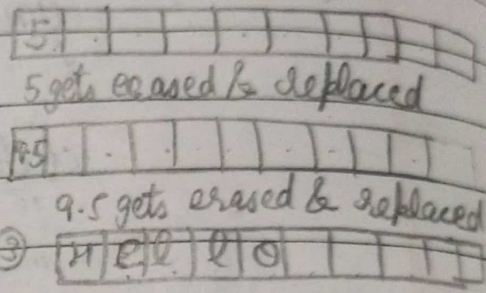 5
5 gets erased & replaced
9.5
9.5 gets erased & replaced
③ H e l l o